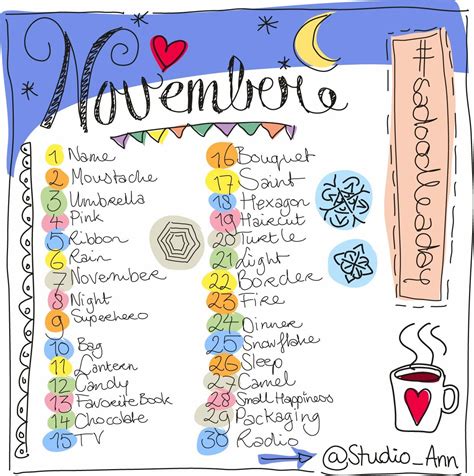 November
#sadoodleaday
1 Name
2 Moustache
3 Umbrella
4 Pink
5 Ribbon
6 Rain
7 November
8 Night
9 Superhero
10 Bag
11 Lantern
12 Candy
13 Favorite Book
14 Chocolate
15 TV
16 Bouquet
17 Saint
18 Hexagon
19 Haircut
20 Turtle
21 Light
22 Border
23 Fire
24 Dinner
25 Snowflake
26 Sleep
27 Camel
28 Small Happiness
29 Packaging
30 Radio
@Studio_Ann